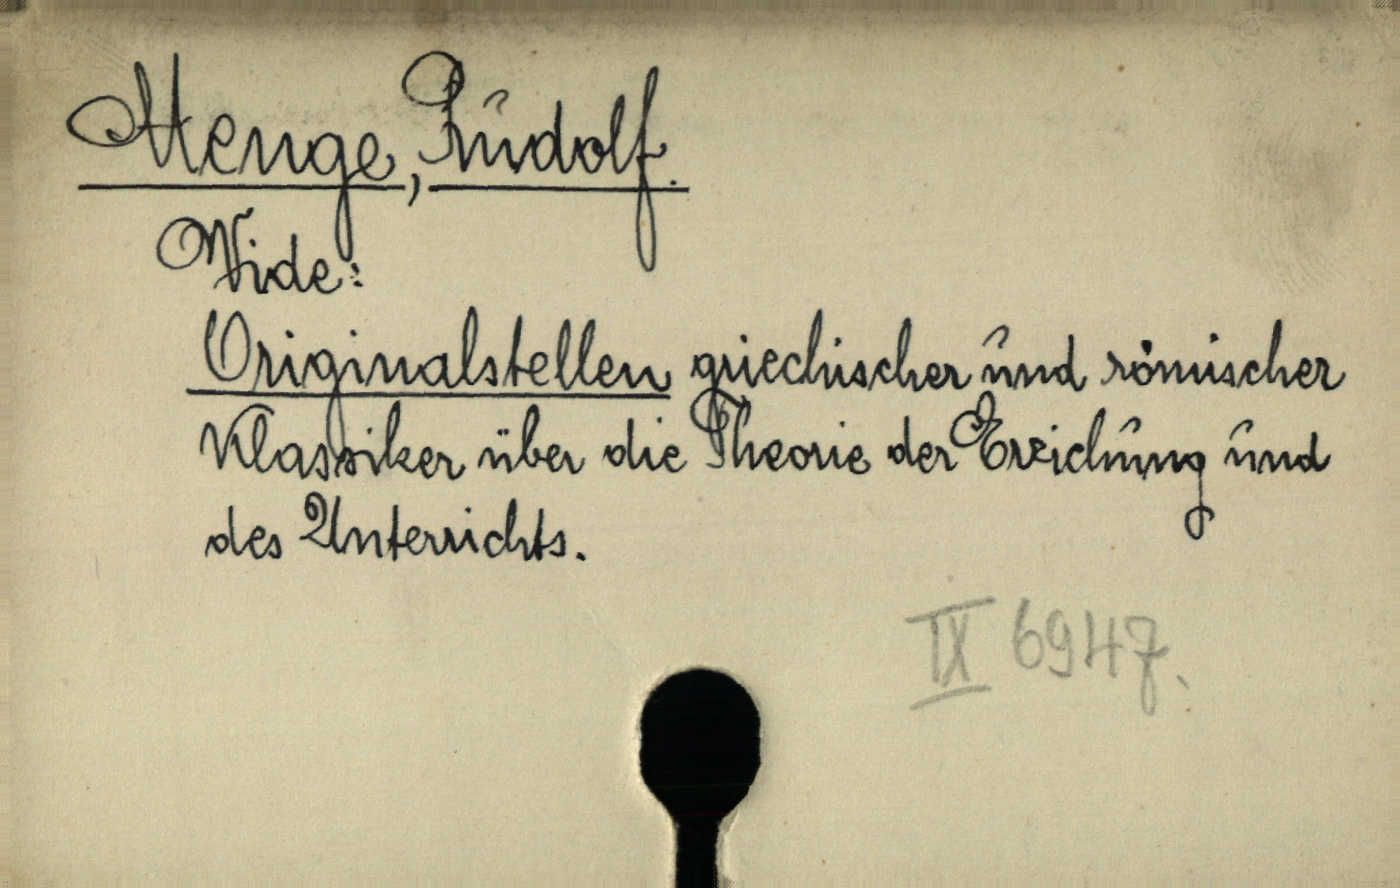 Menge, Rudolf.
Vide:
Originalstellen griechischer und römischer
Klassiker über die Theorie der Erzichung und
des Unterrichts.
IX 6947.